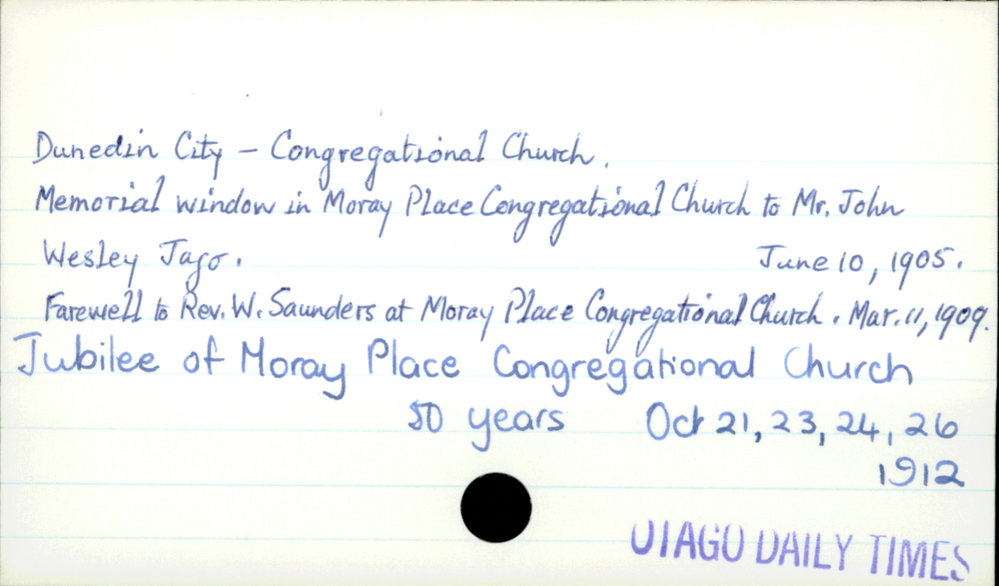 Dunedin City – Congregational Church.
Memorial window in Moray Place Congregational Church to Mr. John
Wesley Jago. June 10, 1905.
Farewell to Rev. W. Saunders at Moray Place Congregational Church. Mar. 11, 1909.
Jubilee of Moray Place Congregational Church
50 years Oct 21, 23, 24, 26
1912
OTAGO DAILY TIMES